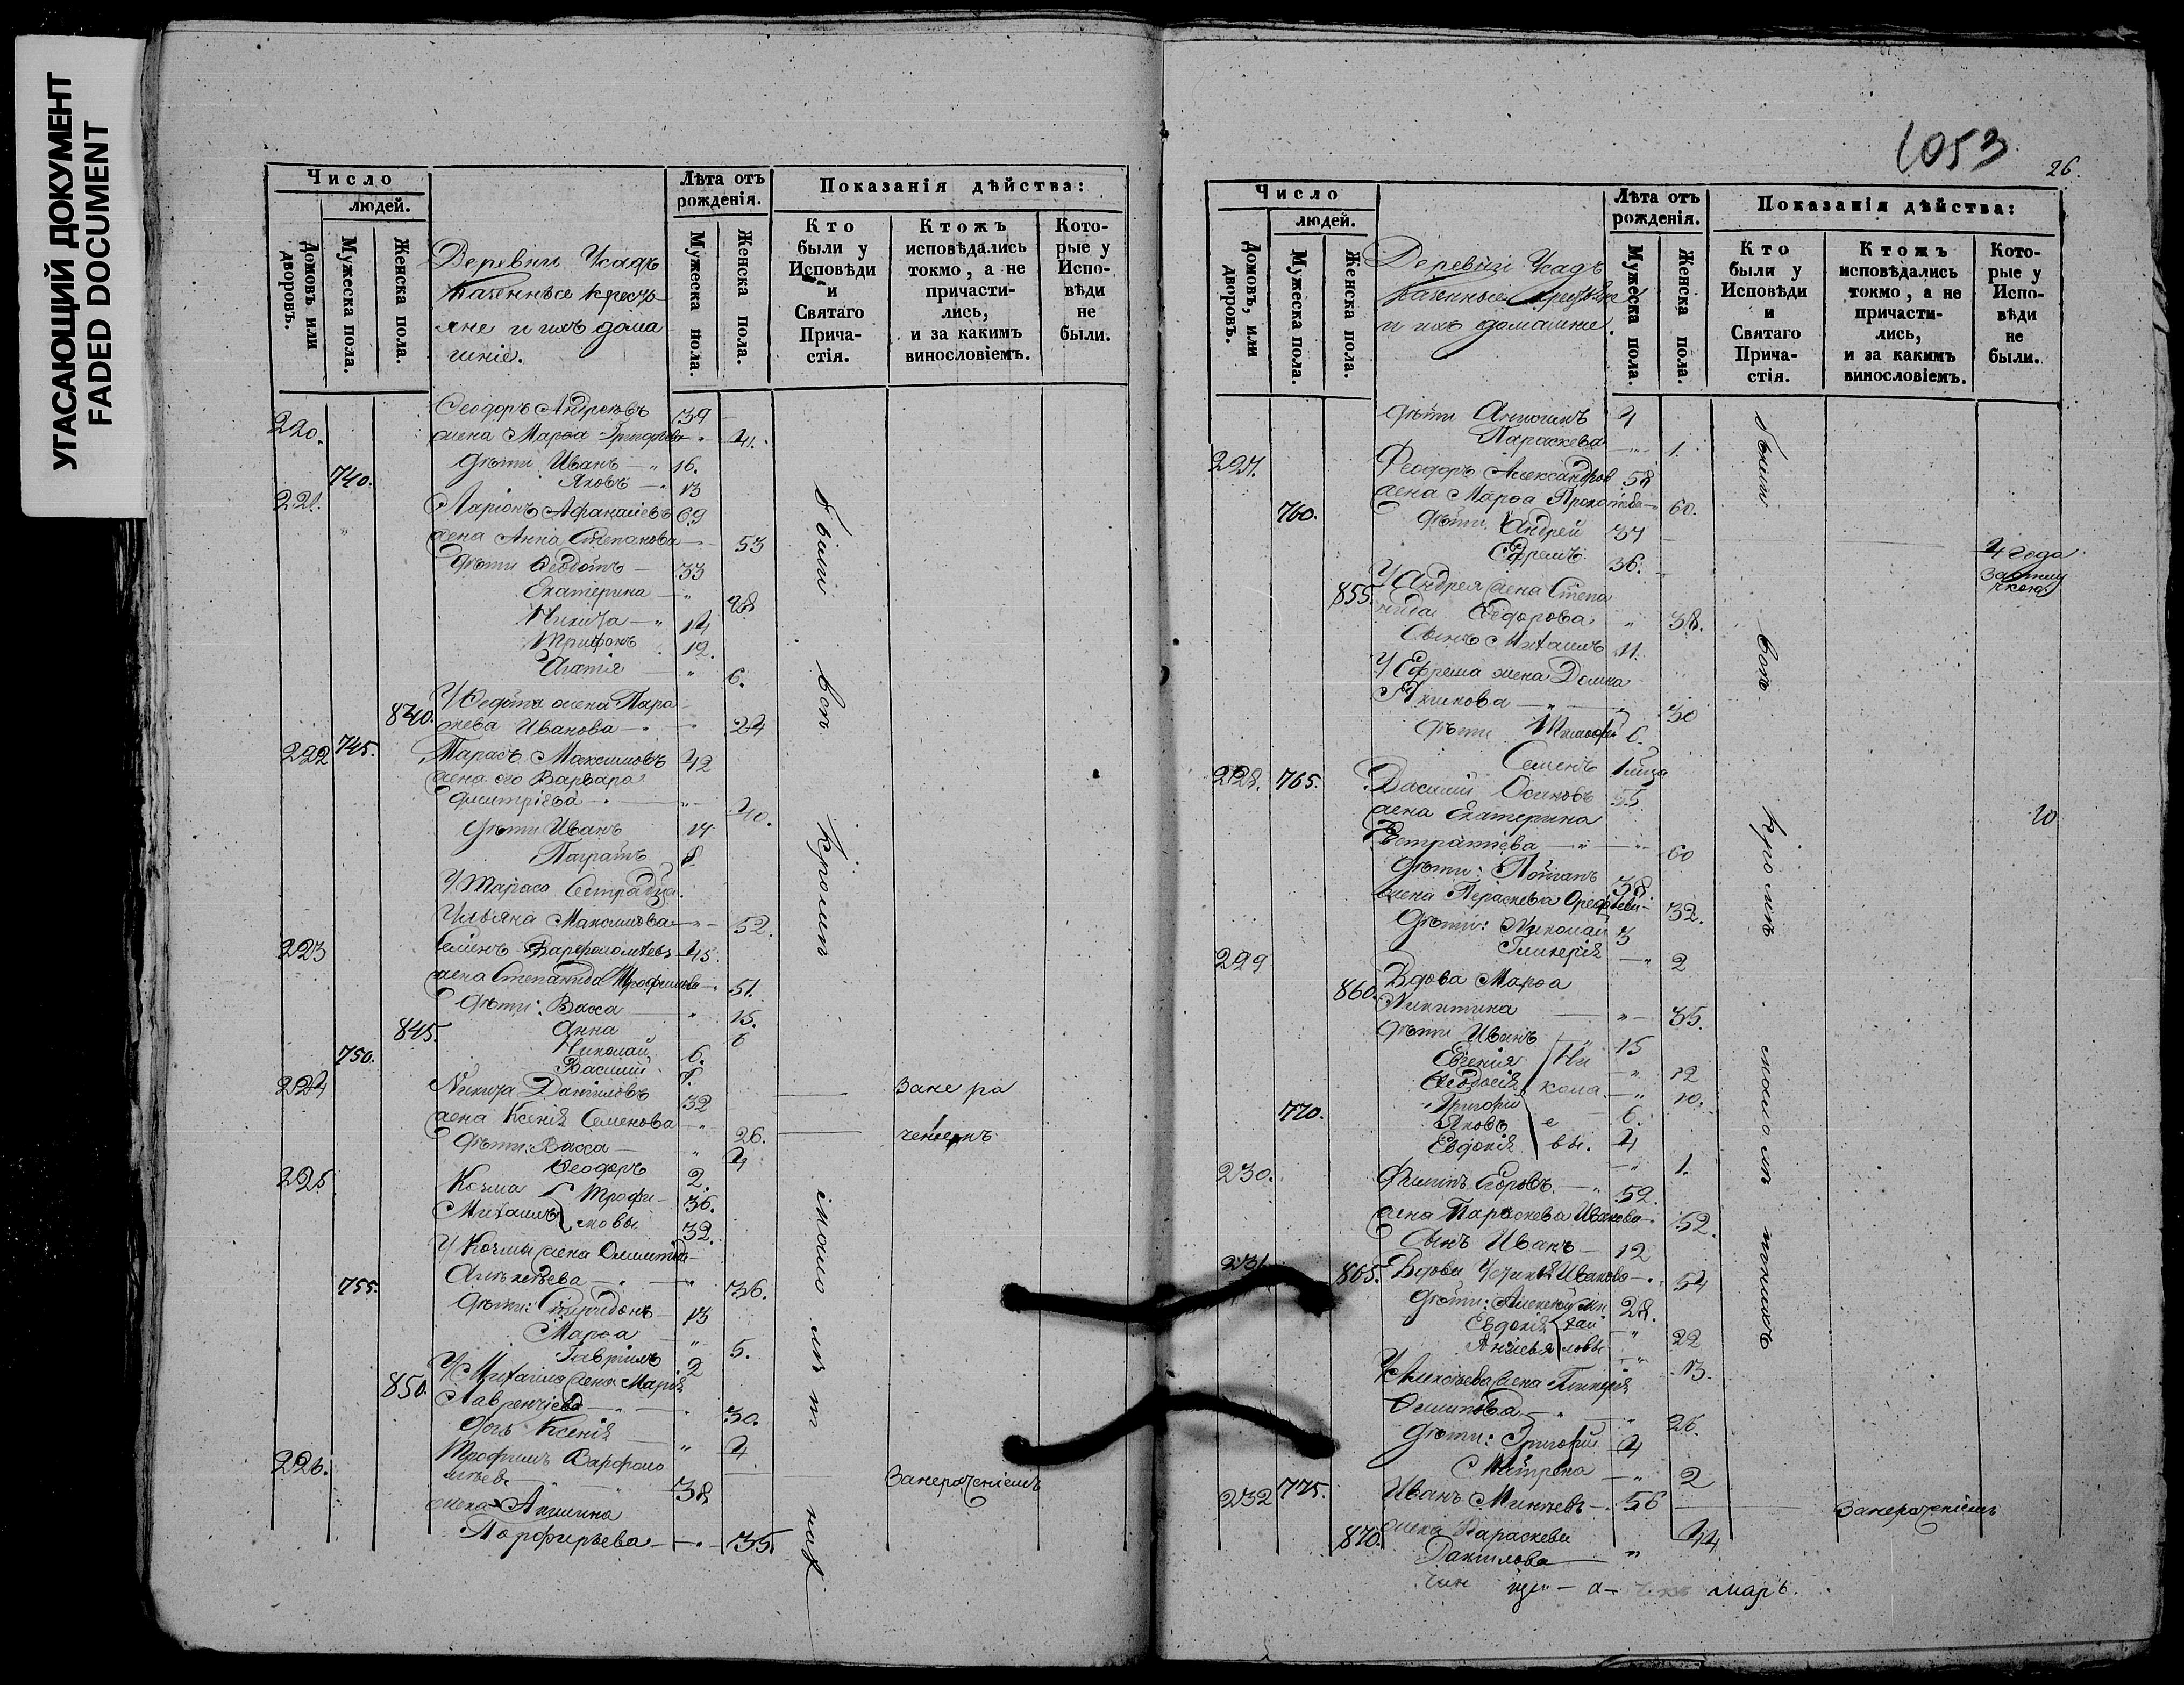 УГАСАЮЩИЙ ДОКУМЕНТ
FADED DOCUMENT
Число
людей.
Домовъ или дворовъ.
Мужеска пола.
Женска пола.
Деревни Усадъ
Казенные кресть
яне и ихъ дома
шніе.
Лѣта отъ рожденія.
Мужеска пола.
Женска пола.
Показанія дѣйства:
Кто были у Исповѣди и Святаго Прича- стія.
Ктожъ исповѣдались токмо, а не причасти- лись, и за какимъ винословіемъ.
Кото- рые у Испо- вѣди не были.
220. Ѳеодоръ Андреевъ 39
жена Марѳа Григорьева 41.
дѣти Иванъ 16.
740. Яковъ 13
221. Ларіонъ Афанасіевъ 69
жена Анна Степанова 53
дѣти Ѳеодотъ 33
Екатерина 28
Никита 14
Трифонъ 12.
Агатія 6.
У Ѳедота жена Пара
840. скева Иванова 24
222 745. Тарасъ Максимовъ 42
жена его Варвара
Дмитріева 40.
дѣти Иванъ 14
8
У Тараса Сестра
Ульяна Максимова 52.
223 Семенъ Варфоломѣевъ 45.
жена Степанида Трофимова 51.
дѣти: Васса 15.
845. Анна 8
Николай 6.
750. Василій 8.
224 Никита Даниловъ 32 Занера
жена Ксенія Семенова 26. ченіемъ
дѣти: Васса 4
Ѳеодоръ 2.
225 Козма Трофи 36.
Михаилъ мовы 32.
У Козмы жена Олимпіада
Алексѣева 36.
755. дѣти: Спиридонъ 13
Марѳа 5.
Гавріилъ 2
У Михаила жена Марія
850. Лаврентіева 30.
дочь Ксенія 4
226. Трофимъ Варфоло
мѣевъ 38 Занераченіемъ
жена Акилина
Порфирьева 35
были всѣ кромѣ малолѣтнихъ
1053
26.
Число
людей.
Домовъ, или дворовъ.
Мужеска пола.
Женска пола.
Деревни Усадъ
Казенные крестьяне
и ихъ домашніе
Лѣта отъ рожденія.
Мужеска пола.
Женска пола.
Показанія дѣйства:
Кто были у Исповѣди и Святаго Прича- стія.
Ктожъ исповѣдались токмо, а не причасти- лись, и за какимъ винословіемъ.
Кото- рые у Испо- вѣди не были.
дѣти 4
Параскева 1.
227. Ѳеодоръ Александров 58
жена Марѳа 60.
760. дѣти Андрей 37 4 года
Ефремъ 36.
У Андрея жена Степа
855. нида Ѳедорова 38.
Сынъ Михаилъ 11.
У Ефрема жена Домна
Якимова 30
дѣти Тимофей 6.
Семенъ 1
228. 765. Василій Осиповъ 55 10
жена Екатерина
Евстратіева 60
дѣти: 38
жена Пераскева 32.
дѣти: Николай 3
Гликерія 2
229 Вдова Марѳа
860. Никитина 35.
дѣти Иванъ 15
Евгенія Ни 12
Ѳеодосія кола 10.
770. Григорій е 6.
Яковъ вы. 4
Евдокія 1.
230. Филипъ Егоровъ 52.
жена Параскева Иванова 52.
Сынъ Иванъ 12
231. 865. Вдова Устинья Иванова 54
дѣти: Алексѣй Ми 28.
Евдокія хай 22
ловы 13.
У Алексѣева жена Гликерія
Осипова 26.
дѣти: Григорій 4
Матрена 2
232 775. Иванъ 56 Занераченіемъ
870. жена Параскева 44
Данилова
были всѣ кромѣ малолѣтнихъ